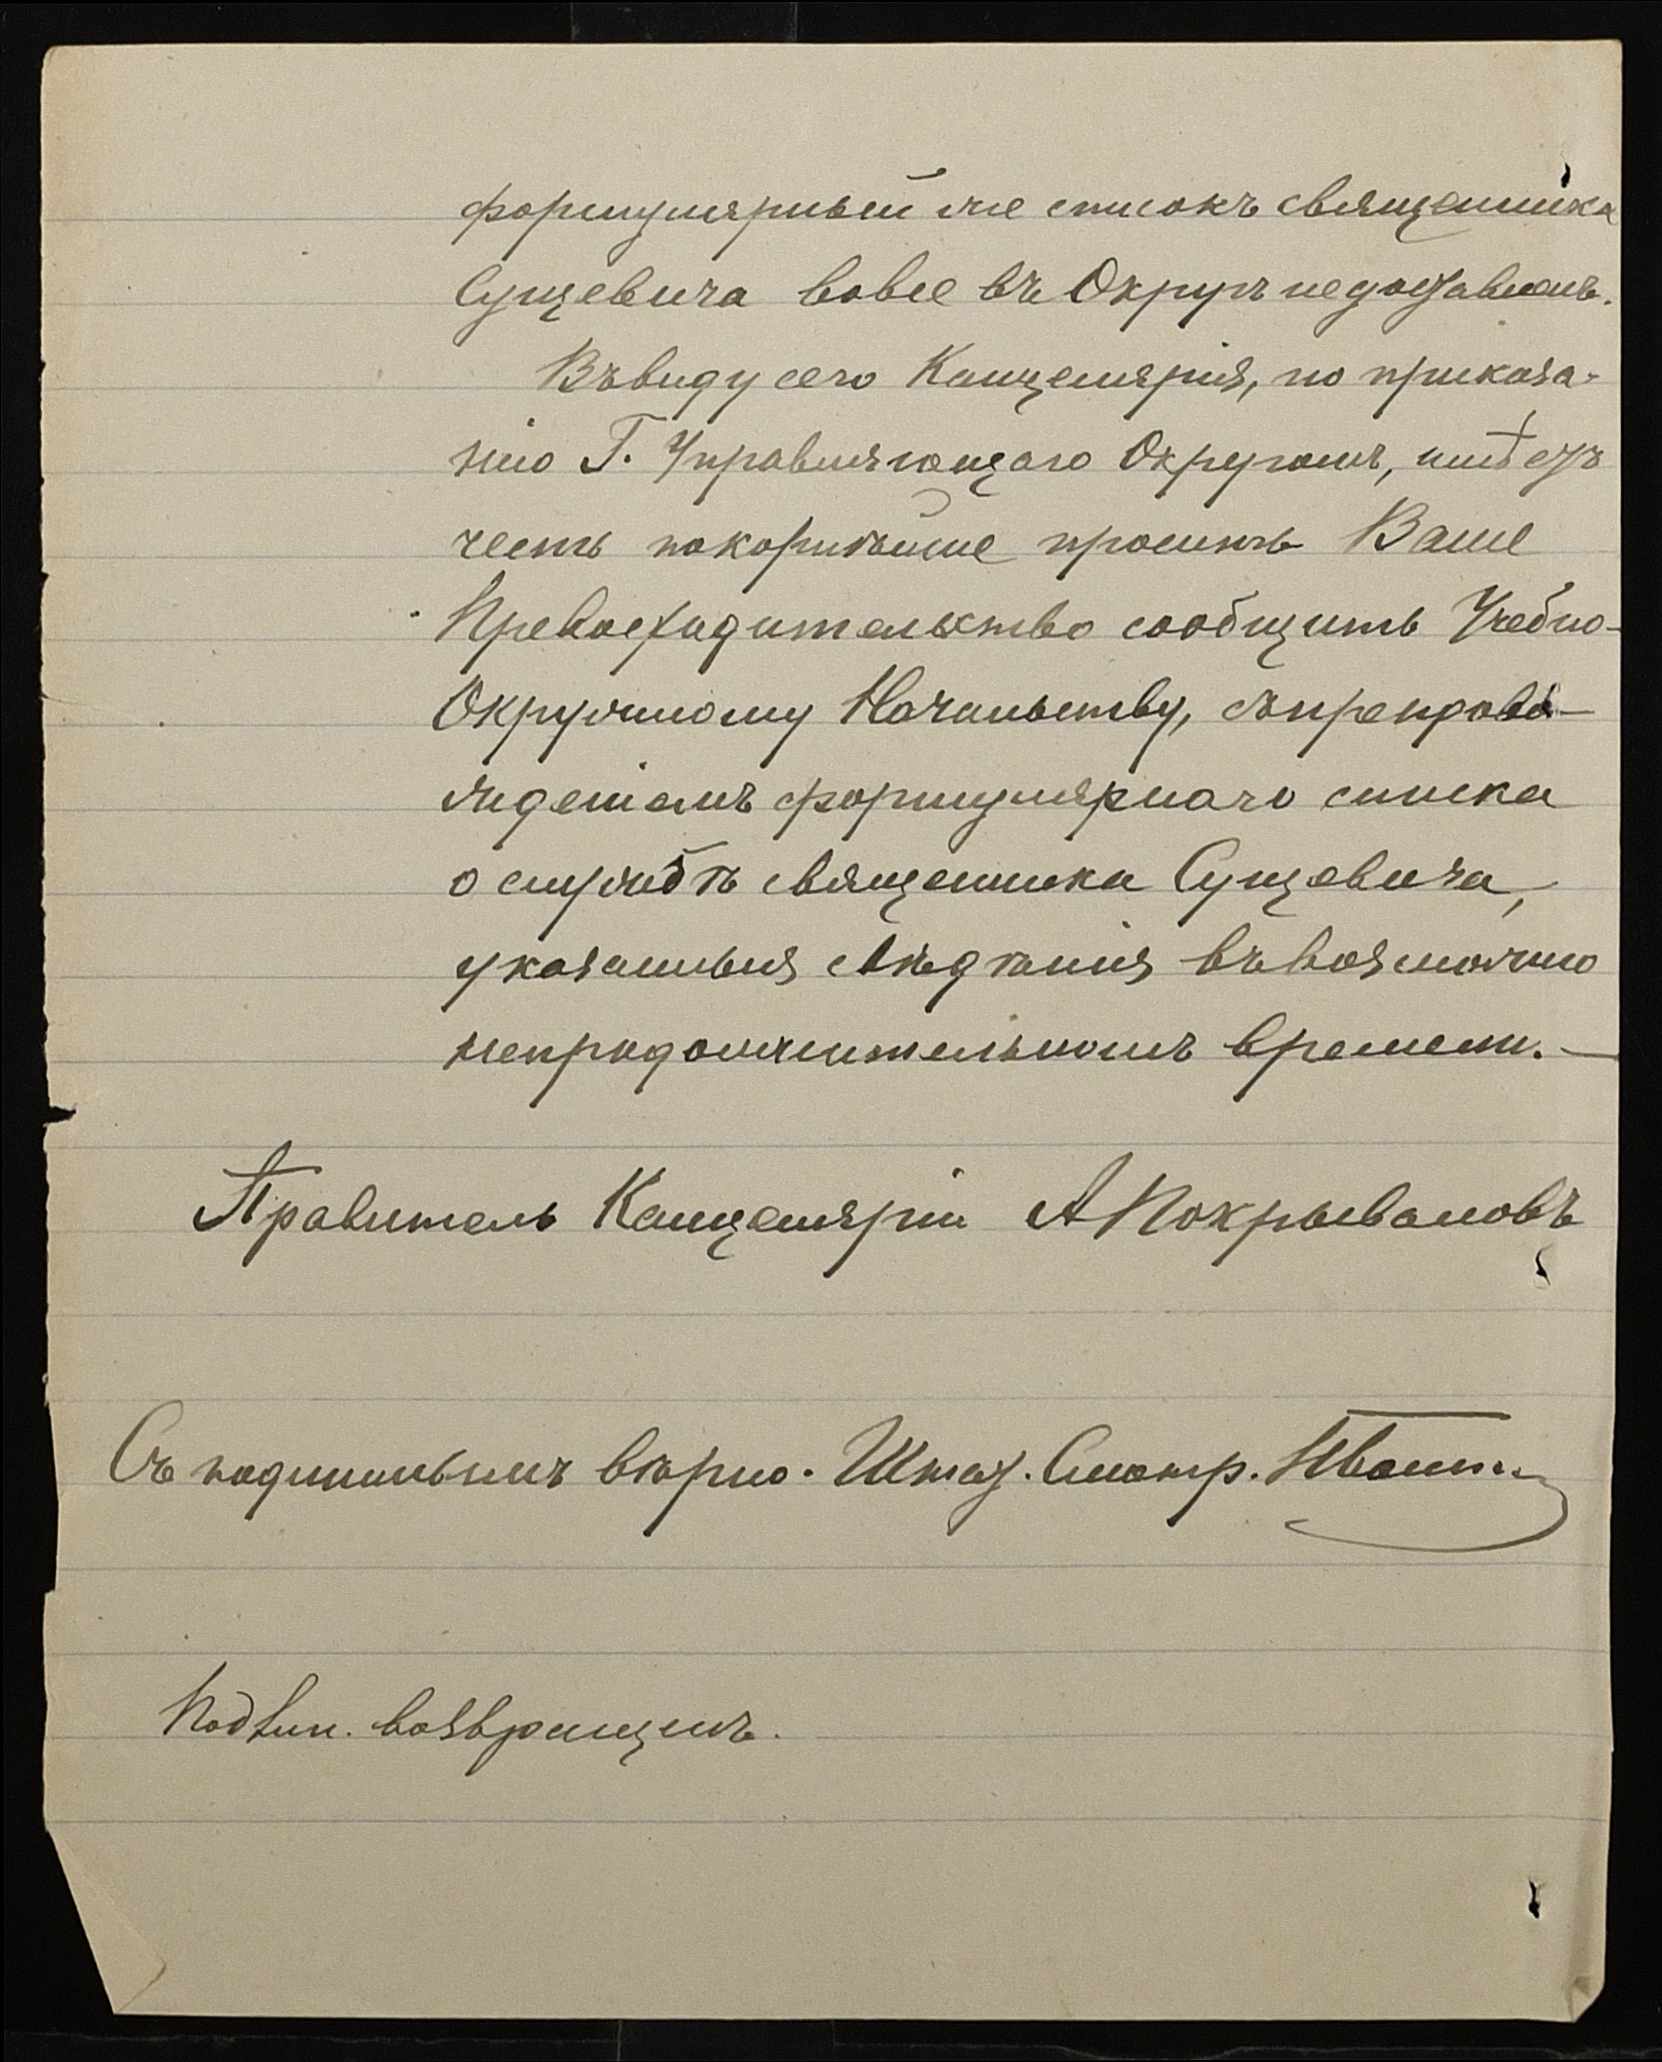 формулярный же списокъ священника
Сущевича вовсе въ Округъ не доставленъ.
Въ виду сего Канцелярія, по приказа-
нію Г. Управляющаго Округомъ, имѣетъ
честь покорнѣйше просить Ваше
Превосходительство сообщить Учебно-
Окружному Начальству, съ препрово-
жденіемъ формулярнаго списка
о службѣ священника Сущевича,
указанныя свѣдѣнія въ возможно
непродолжительномъ времени.—
Правитель Канцеляріи А Покрываловъ
Съ подлиннымъ вѣрно. Штат. Смотр.
Подлин. возвращенъ.